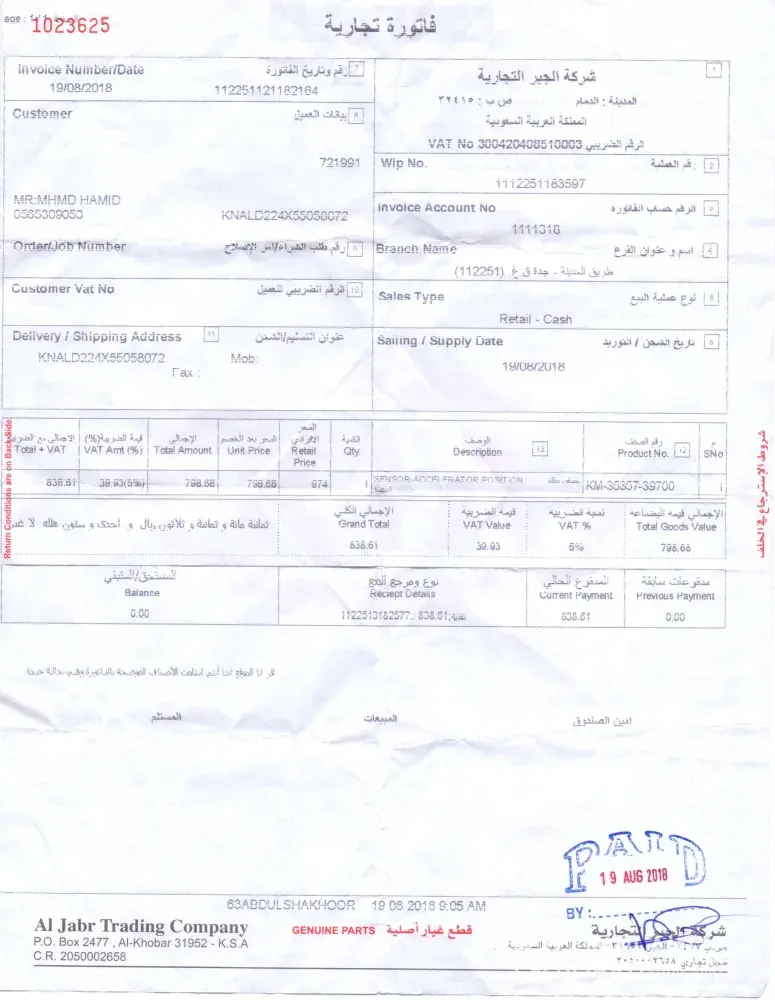 age : 1 / 1
1023625
فاتورة تجارية
Invoice Number/Date رقم وتاريخ الفاتورة 7
19/08/2018 112251121182164
Customer بيانات العميل 8
721991
MR:MHMD HAMID
0565309053 KNALD224X55058072
Order/Job Number رقم طلب الشراء/أمر الإصلاح
Customer Vat No الرقم الضريبي للعميل 10
Delivery / Shipping Address 11 عنوان التسليم/الشحن
KNALD224X55058072 Mob:
Fax :
شركة الجبر التجارية 1
المدينة : الدمام ص ب : ٣٢٤١٥
المملكة العربية السعودية
VAT No 300420408510003 الرقم الضريبي
Wip No. رقم العملية 2
1112251183597
Invoice Account No الرقم حساب الفاتورة 3
1111318
Branch Name اسم و عنوان الفرع 4
طريق المدينة - جدة ق غ (112251)
Sales Type نوع عملية البيع 5
Retail - Cash
Sailing / Supply Date تاريخ الشحن / التوريد 6
19/08/2018
الاجمالي مع الضريبة قيمة الضريبة(%) الإجمالي السعر بعد الخصم السعر الافرادي الكمية الوصف رقم الصنف م
Total + VAT VAT Amt (%) Total Amount Unit Price Retail Price Qty Description 13 Product No. 12 SNo
838.61 39.93(5%) 798.68 798.68 974 1 SENSOR-ACCELERATOR POSITION KM-35307-39700 1
ثمانية مائة و ثمانية و ثلاثون ريال و أحدى و ستون هللة لا غير
الإجمالي الكلي قيمه الضريبيه نسبة الضريبيه الإجمالي قيمه البضاعه
Grand Total VAT Value VAT % Total Goods Value
838.61 39.93 5% 798.68
المستحق/المتبقي نوع ومرجع الدفع المدفوع الحالي مدفوعات سابقة
Balance Reciept Details Current Payment Previous Payment
0.00 1122513182577: 838.61:نقدية 838.61 0.00
اقر انا الموقع ادنا أنني استلمت الأصناف الموضحة بالفاتورة وهي بحالة جيدة
المستلم المبيعات امين الصندوق
Return Conditions are on Back Side.
شروط الإسترجاع في الخلف
PAID
19 AUG 2018
BY :
63ABDULSHAKHOOR 19 08 2018 9:05 AM
Al Jabr Trading Company GENUINE PARTS قطع غيار أصلية شركة الجبر التجارية
P.O. Box 2477 , Al-Khobar 31952 - K.S.A
المملكة العربية السعودية
C.R. 2050002658 سجل تجاري ٢٠٥٠٠٠٢٦٥٨